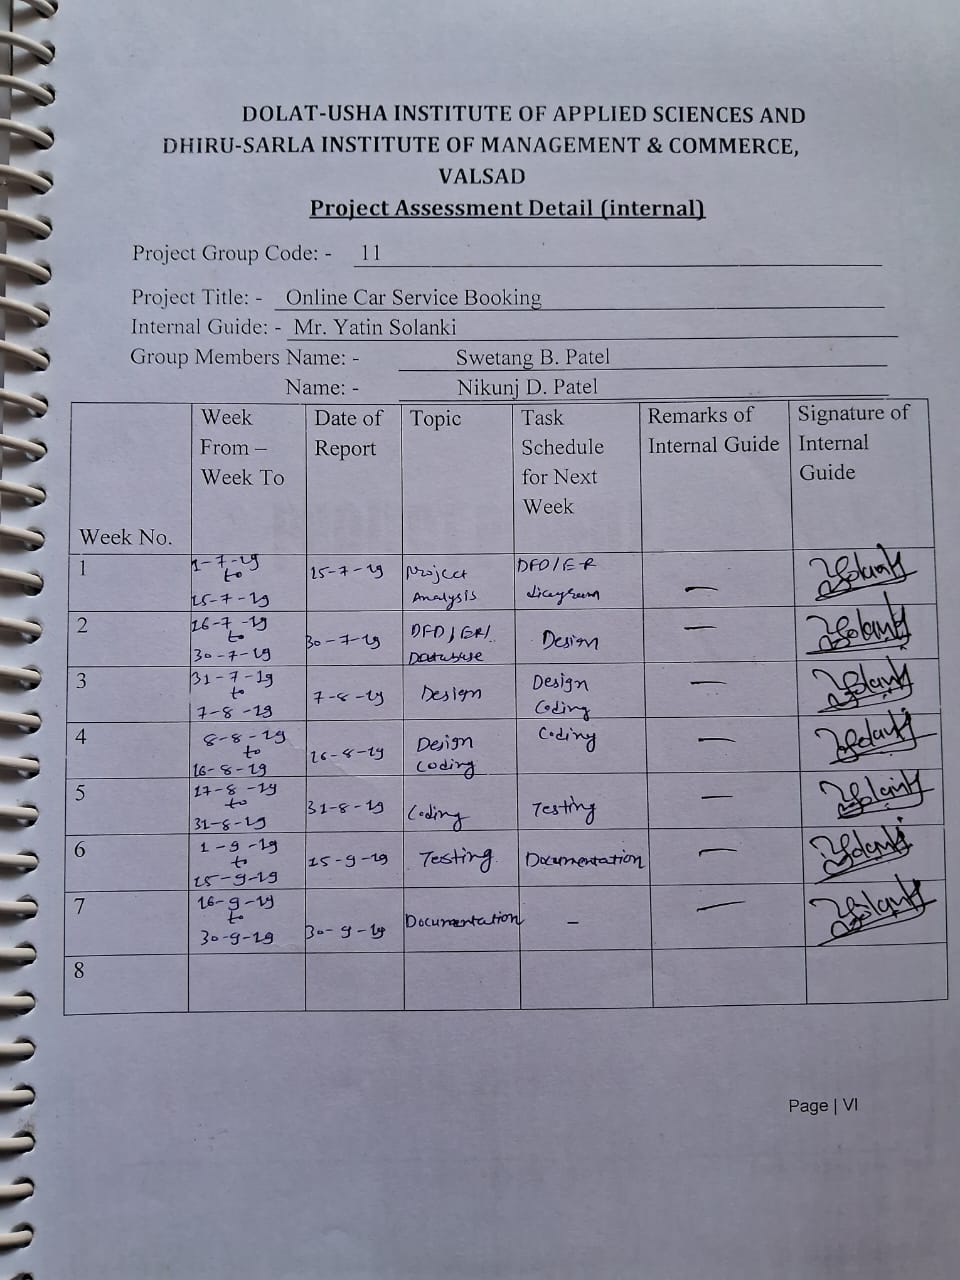 DOLAT-USHA INSTITUTE OF APPLIED SCIENCES AND
DHIRU-SARLA INSTITUTE OF MANAGEMENT & COMMERCE,
VALSAD
Project Assessment Detail (internal)
Project Group Code: - 11
Project Title: - Online Car Service Booking
Internal Guide: - Mr. Yatin Solanki
Group Members Name: - Swetang B. Patel
Name: - Nikunj D. Patel
Week No. Week From – Week To Date of Report Topic Task Schedule for Next Week Remarks of Internal Guide Signature of Internal Guide
1 1-7-19 to 15-7-19 15-7-19 Project Analysis DFD/ER diagram —
2 16-7-19 to 30-7-19 30-7-19 DFD/ER/ Database Design —
3 31-7-19 to 7-8-19 7-8-19 Design Design Coding —
4 8-8-19 to 16-8-19 16-8-19 Design Coding Coding —
5 17-8-19 to 31-8-19 31-8-19 Coding Testing —
6 1-9-19 to 15-9-19 15-9-19 Testing Documentation —
7 16-9-19 to 30-9-19 30-9-19 Documentation – —
8
Page | VI